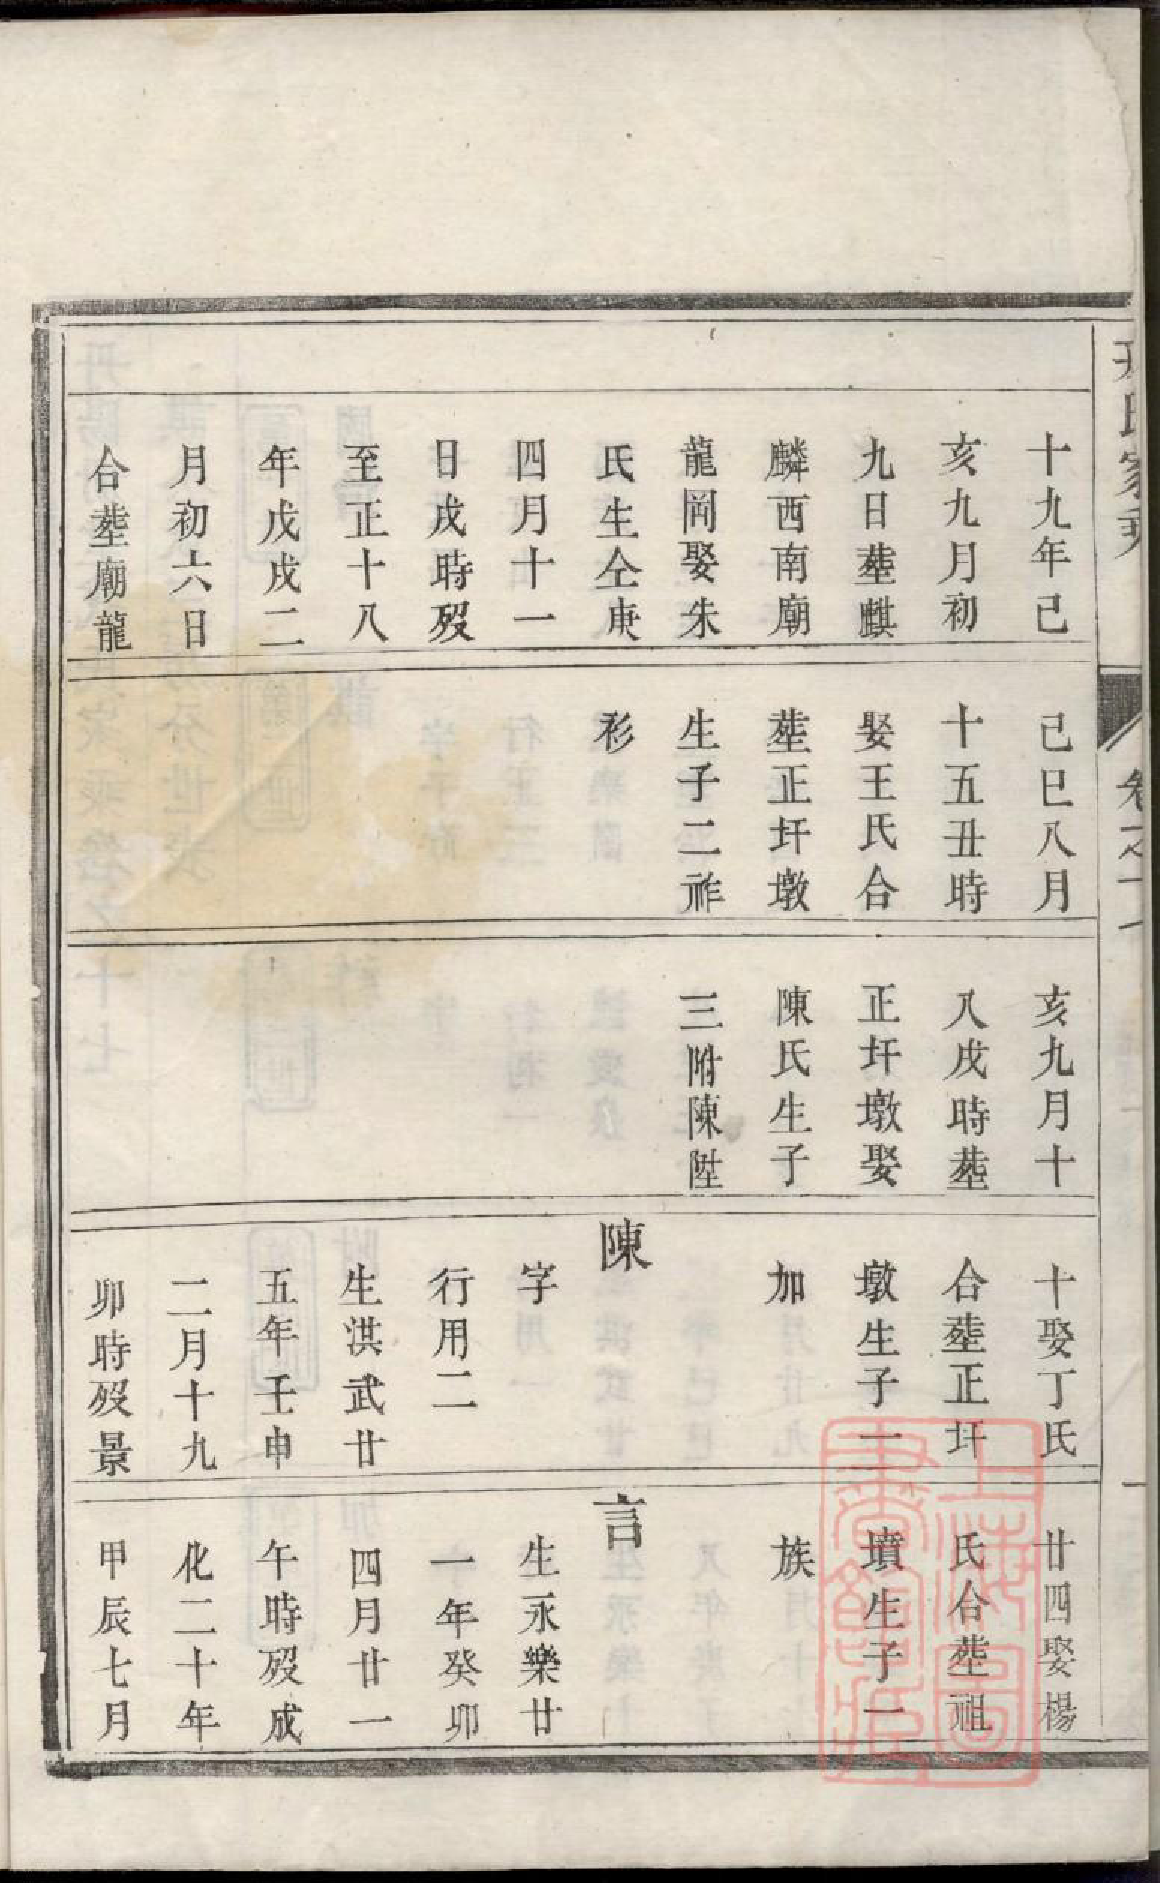 十九年己
亥九月初
九日塟麒
麟西南廟
龍岡娶朱
氏生仝庚
四月十一
日戌時殁
至正十八
年戊戌二
月初六日
合塟廟龍
己巳八月
十五丑時
娶王氏合
塟正圩墩
生子二祚
衫
亥九月十
八戌時塟
正圩墩娶
陳氏生子
三附陳陞
十娶丁氏
合塟正圩
墩生子一
加
陳
字
行用二
生洪武廿
五年壬申
二月十九
卯時殁景
廿四娶楊
氏合塟祖
墳生子一
族
言
生永樂廿
一年癸卯
四月廿一
午時殁成
化二十年
甲辰七月
氏家乘
卷之十
上海圖書館藏